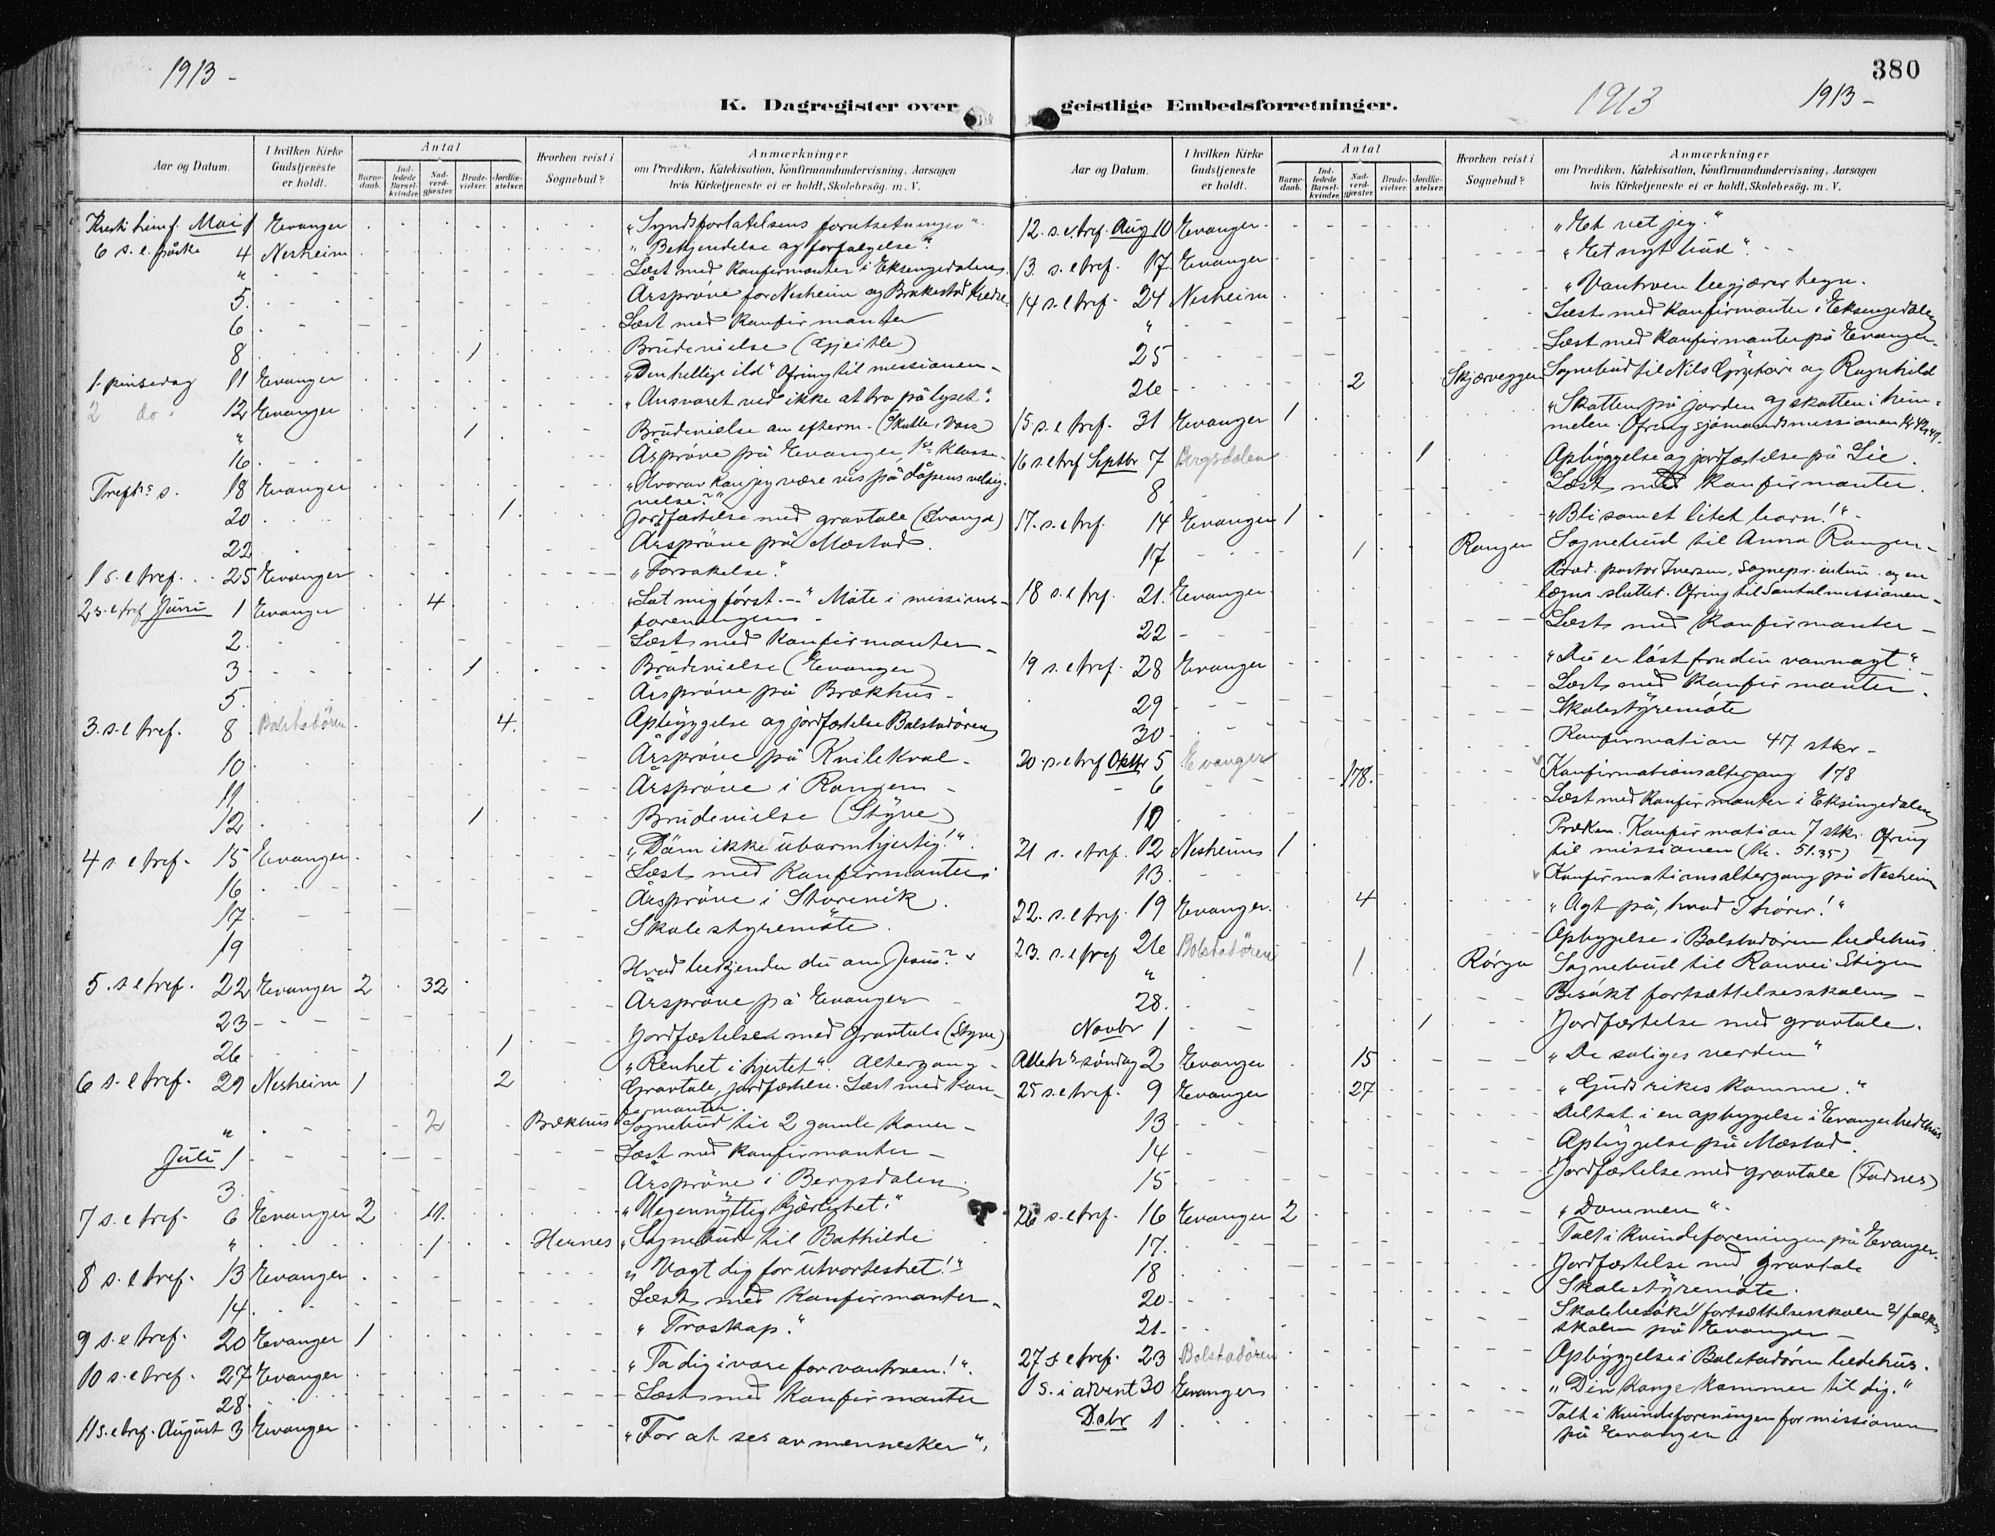 1913 –
K. Dagregister over
Aar og Datum.
I hvilken Kirke Gudstjeneste er holdt.
Antal
Barnedaab.
Indledede Barselkvinder.
Nadverdgjæster.
Brudevielser.
Jordfæstelser.
Hvorhen reist i Sognebud?
Anmærkninger
om Prædiken, Katekisation, Konfirmandundervisning, Aarsagen
hvis Kirketjeneste ei er holdt, Skolebesøg. m. V.
Kristi himf. Mai 1 Evanger "Syndsforlatelsens forutsetninger".
6 s. e. påske 4 Nesheim "Bekjendelse og forfølgelse".
" Læst med konfirmanter i Eksingedalen.
5. Årsprøve for Nesheim og Brakestad kredse.
6 Læst med konfirmanter
8 1 Brudevielse (Gjeitle)
1. pinsedag 11 Evanger "Den hellige ild" Ofring til missionen –
2 do. 12 Evanger "Ansvaret ved ikke at tro på lyset".
" 1 Brudevielse an efterm. (Skutle, Voss)
16 Årsprøve på Evanger 1ste klasse.
Trefh.s s. 18 Evanger "Hvorav kan jeg være vis på dåpens velsignelse?"
20 1 Jordfæstelse med gravtale (Evanger)
22 Årsprøve på Mæstad.
1 s. e. tref. 25 Evanger "Forsakelse."
2 s. e. tref Juni 1 Evanger 4 "Lat mig först –" Möte i missionsforeningen –
2. Læst med konfirmanter –
3 1 Brudevielse (Evanger)
5. Årsprøve på Brækhus –
3. s. e. tref. 8 Bolstadören 4. Opbyggelse og jordfæstelse Bolstadören
10 Årsprøve på Kvilekval –
11 Årsprøve i Rangen –
12 1 Brudevielse (Styve)
4 s. e. tref. 15 Evanger "Döm ikke ubarmhjertig!".
16 Læst med konfirmanter.
17 Årsprøve i Storevik.
19 Skolestyremöte.
5. s. e. tref. 22 Evanger 2 32 Hvad bekjender du om Jesus?
23 Årsprøve på Evanger
26 1 Jordfæstelse med gravtale (Styve)
6 s. e. tref. 29 Nesheim 1 2 "Renhet i hjertet". Altergang –
Gravtale, jordfæstelse. Læst med konfirmanter.
" 2 Brækhus Sognebud til 2 gamle koner –
Juli 1 Læst med konfirmanter –
3. Årsprøve i Bergsdalen
7 s. e. tref. 6 Evanger 2 11. "Uegennyttig kjærlighet."
" 1 Hernes Sognebud til Bothilde
8 s. e. tref. 13 Evanger "Vogt dig for utvorteshet!"
14. Læst med konfirmanter –
9 s. e. tref. 20 Evanger 1 "Troskap."
10 s. e. tref. 27 Evanger "Ta dig i vare for vantroen!".
28. Læst med konfirmanter
11 s. e. tref. August 3 Evanger "For at ses av mennesker".
380
1913
1913 –
geistlige Embedsforretninger.
Aar og Datum.
I hvilken Kirke Gudstjeneste er holdt.
Antal
Barnedaab.
Indledede Barselkvinder.
Nadverdgjæster.
Brudevielser.
Jordfæstelser.
Hvorhen reist i Sognebud?
Anmærkninger
om Prædiken, Katekisation, Konfirmandundervisning, Aarsagen
hvis Kirketjeneste ei er holdt, Skolebesøg. m. V.
12. s. e. tref. Aug 10 Evanger. "Et vet jeg."
13. s. e. tref. 17. Evanger "Et nyt bud".
14 s. e. tref. 24 Nesheim "Vantroen begjærer tegn.
" Læst med konfirmanter i Eksingedalen
25 Læst med konfirmanter på Evanger.
26 2 Skjærveggen Sognebud til Nils og Ragnhild
15. s. e. tref. 31 Evanger 1 "Skatten på jorden og skatten i himmelen. Ofring sjömandsmissionen
16 s. e. tref Septbr 7 Bergsdalen 1 Opbyggelse og jordfæstelse på Lie.
8. Læst med konfirmanter.
17. s. e. tref. 14 Evanger 1 "Bli som et litet barn!".
17 1 Rangen Sognebud til Anna Rangen –
18 s. e. tref. 21. Evanger Præd. pastor Iversen, sognepr. Ofring til Santalmissionen –
22 Læst med konfirmanter –
19 s. e. tref. 28 Evanger "Du er löst fra din vanmagt".
29 Læst med konfirmanter.
30 Skolestyremöte
20 s. e. tref Oktbr 5 Evanger Konfirmation 47 stkr –
6 178. Konfirmationsaltergang 178
10 Læst med konfirmanter i Eksingedalen
21 s. e. tref. 12 Nesheim 1 Præken. Konfirmation 7 stkr. Ofring til missionen (Kr. 51.35)
13. Konfirmationsaltergang på Nesheim
22. s. e. tref. 19 Evanger. 4 "Agt på, hvad I hörer!"
23. s. e. tref 26 Bolstadören Opbyggelse i Bolstadören bedehus.
" 1 Rørgu Sognebud til Ranvei Stigen
28. Besökt fortsættelsesskolen –
Novbr 1 1 Jordfæstelse med gravtale.
Alleh.s söndag 2 Evanger 15 "De saliges verden"
25 s. e. tref. 9 Evanger 27 "Guds rikes komme."
13 Deltat i en opbyggelse i Evanger bedehus
14 Opbyggelse på Mæstad.
15 Jordfæstelse med gravtale (Fadnes)
26 s. e. tref. 16 Evanger 2 "Dommen".
17. Talt i kvindeforeningen på Evanger.
18 Jordfæstelse med gravtale
20 Skolestyremöte.
21. Skolebesök i fortsættelsesskolen og folkeskolen på Evanger –
27 s. e. tref. 23 Bolstadören Opbyggelse i Bolstadören bedehus.
1 s. i advent 30 Evanger "Din konge kommer til dig."
Dcbr 1 Talt i kvindeforeningen for missionen på Evanger.